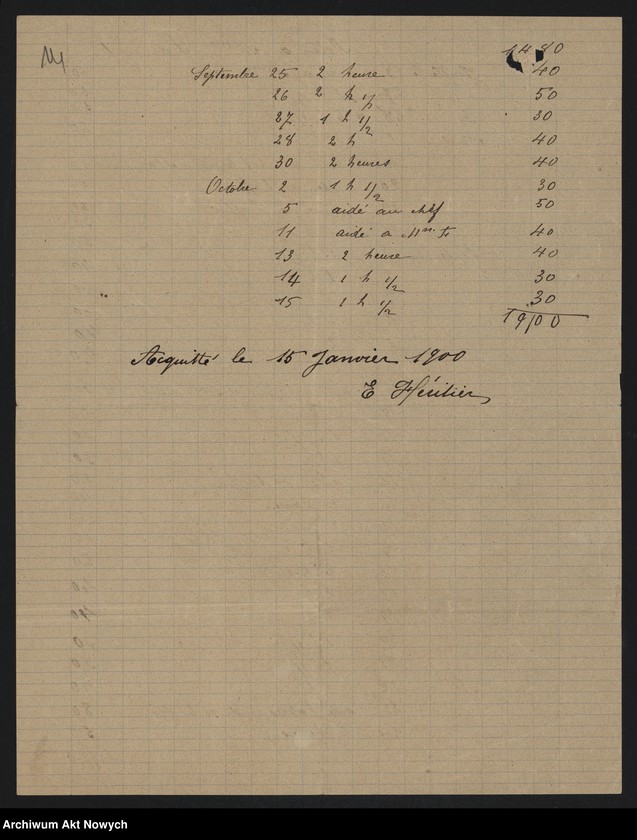 14 80
Septembre 25 2 heure 40
26 2 h 1/2 50
27 1 h 1/2 30
28 2 h 40
30 2 heures 40
Octobre 2 1 h 1/2 30
5 aidé au 50
11 aidé a 40
13 2 heure 40
14 1 h 1/2 30
15 1 h 1/2 30
19,00
Acquitté le 15 Janvier 1900
E Héritier
Archiwum Akt Nowych